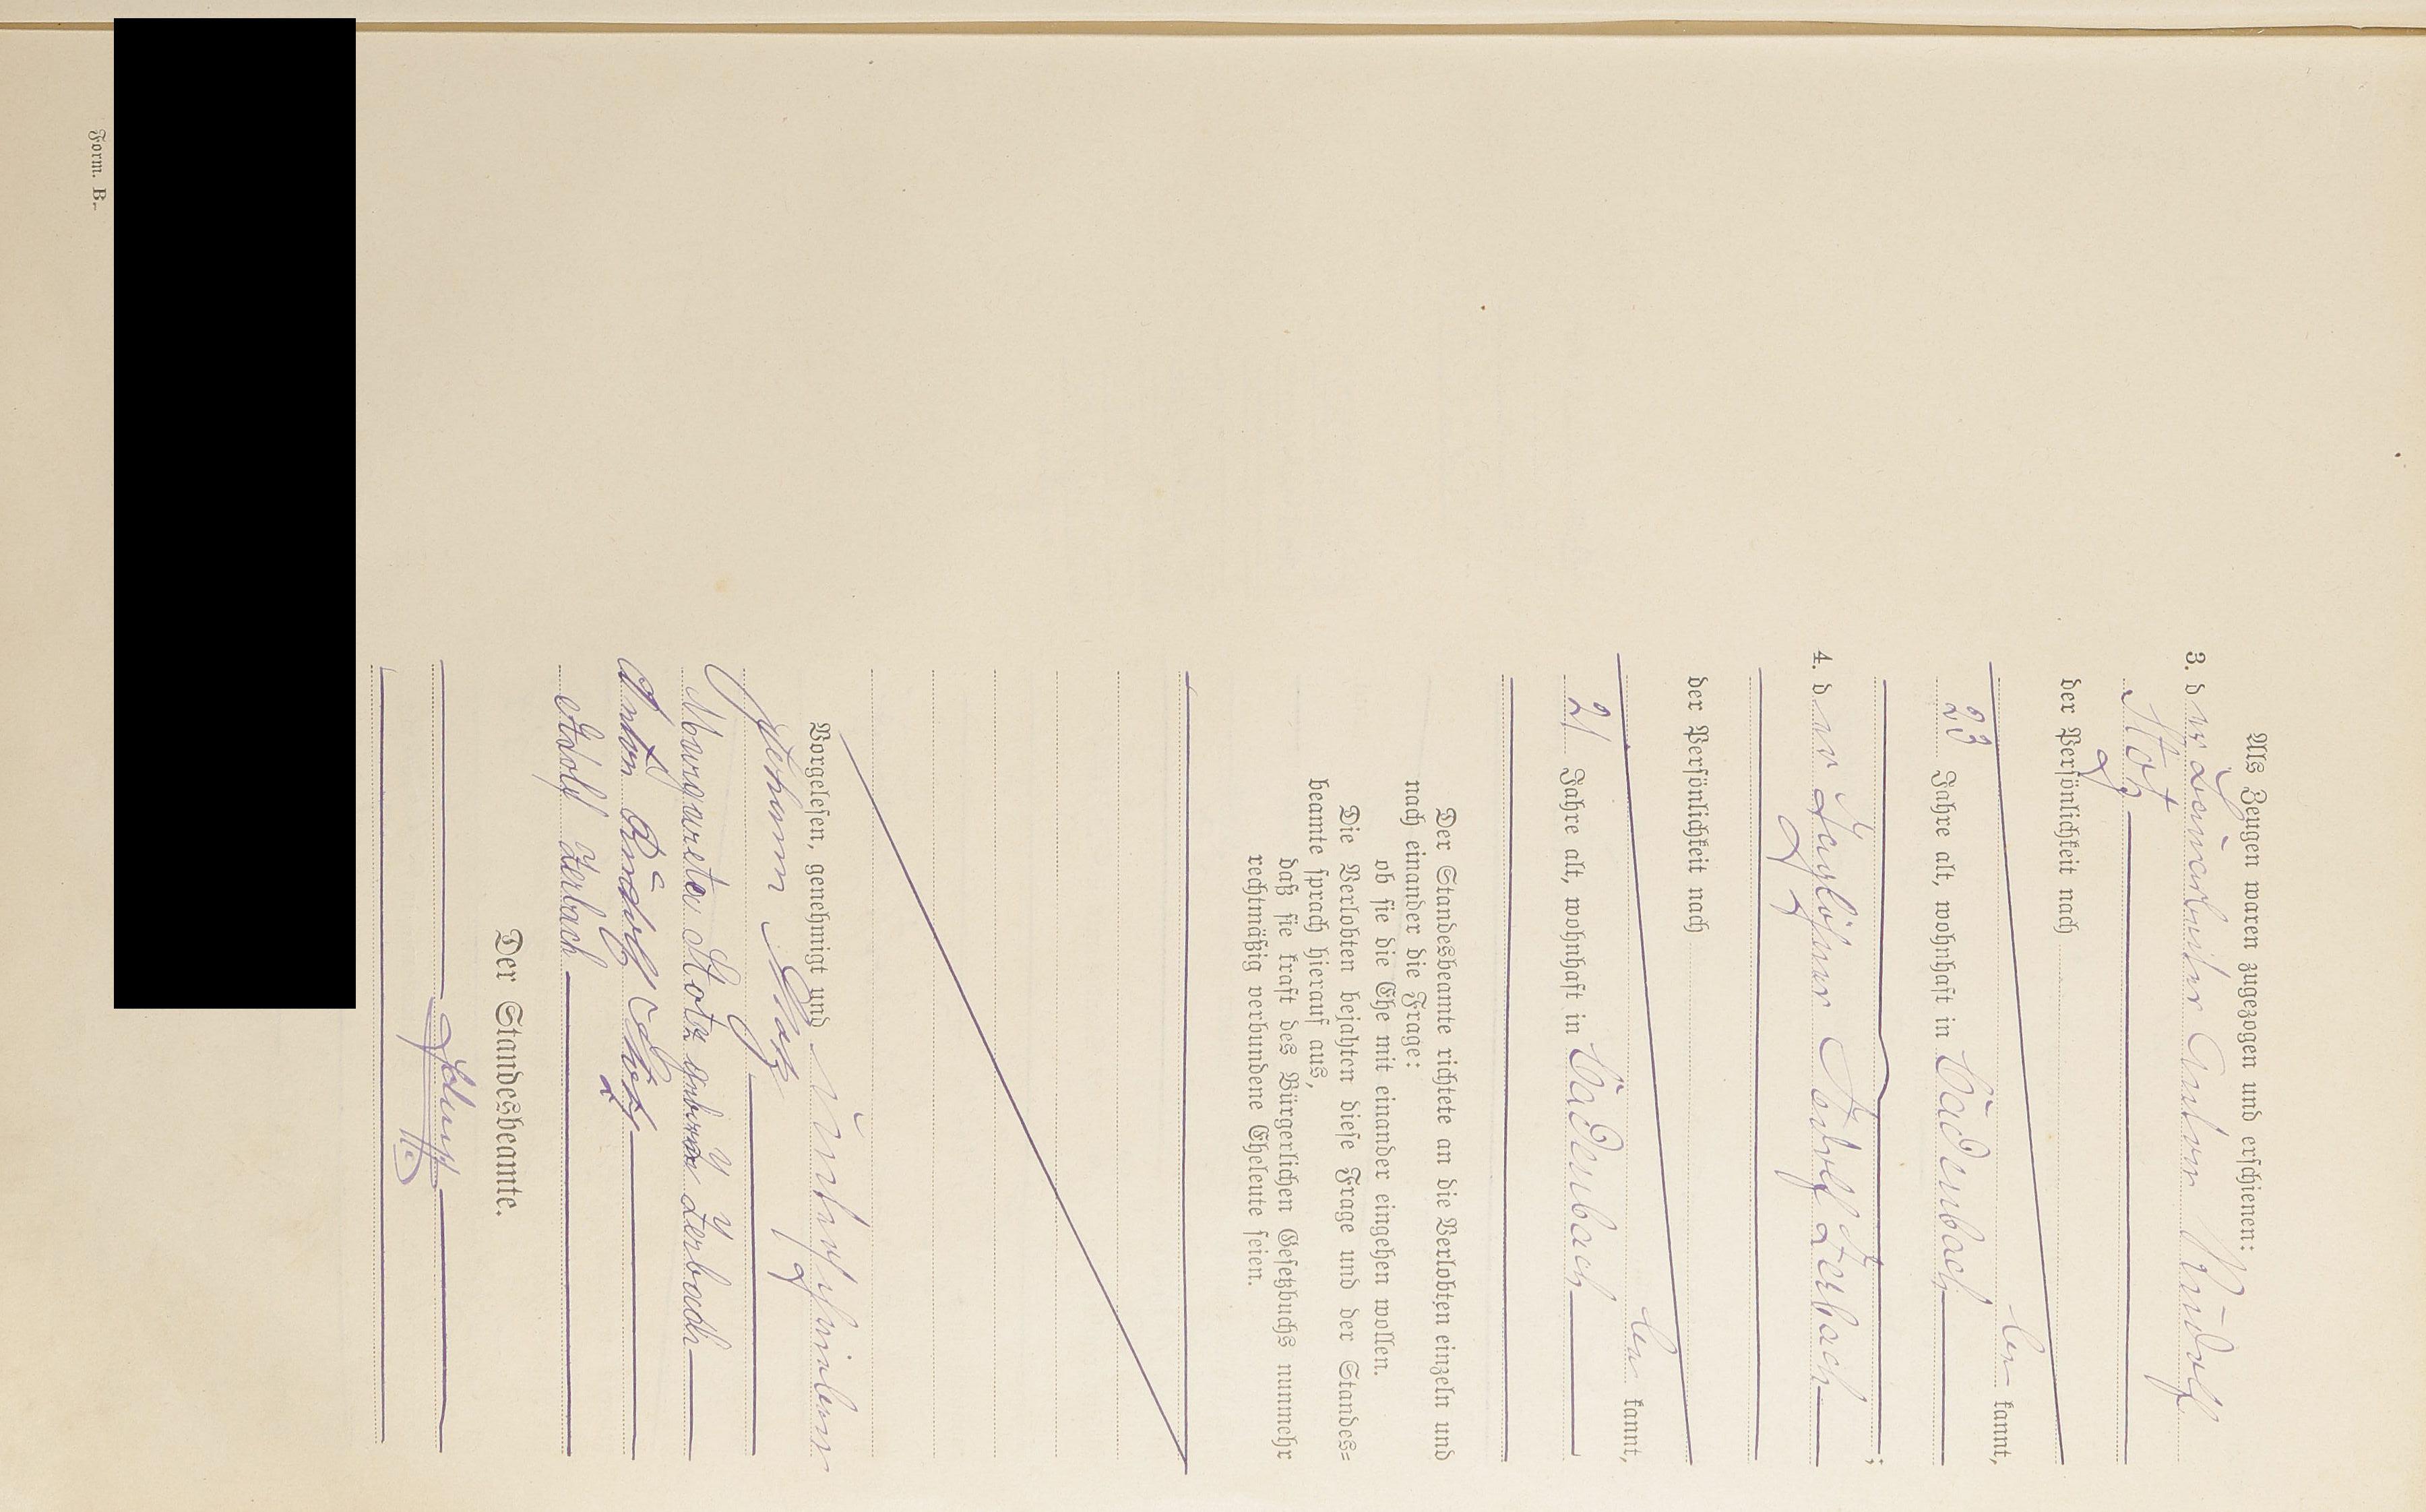 Als Zeugen waren zugezogen und erschienen:
3. der Anton Rudolf
Stotz
der Persönlichkeit nach
kannt,
23 Jahre alt, wohnhaft in Badenbach
;
4. der Taglöhner Adolf Zerbach
der Persönlichkeit nach
kannt,
21 Jahre alt, wohnhaft in Badenbach
Der Standesbeamte richtete an die Verlobten einzeln und
nach einander die Frage:
ob sie die Ehe mit einander eingehen wollen.
Die Verlobten bejahten diese Frage und der Standes=
beamte sprach hierauf aus,
daß sie kraft des Bürgerlichen Gesetzbuchs nunmehr
rechtmäßig verbundene Eheleute seien.
Vorgelesen, genehmigt und unterschrieben
Johann Stotz
Margareta Stotz geborene Zerbach
Anton Rudolf Stotz
Adolf Zerbach
Der Standesbeamte.
Form. B.